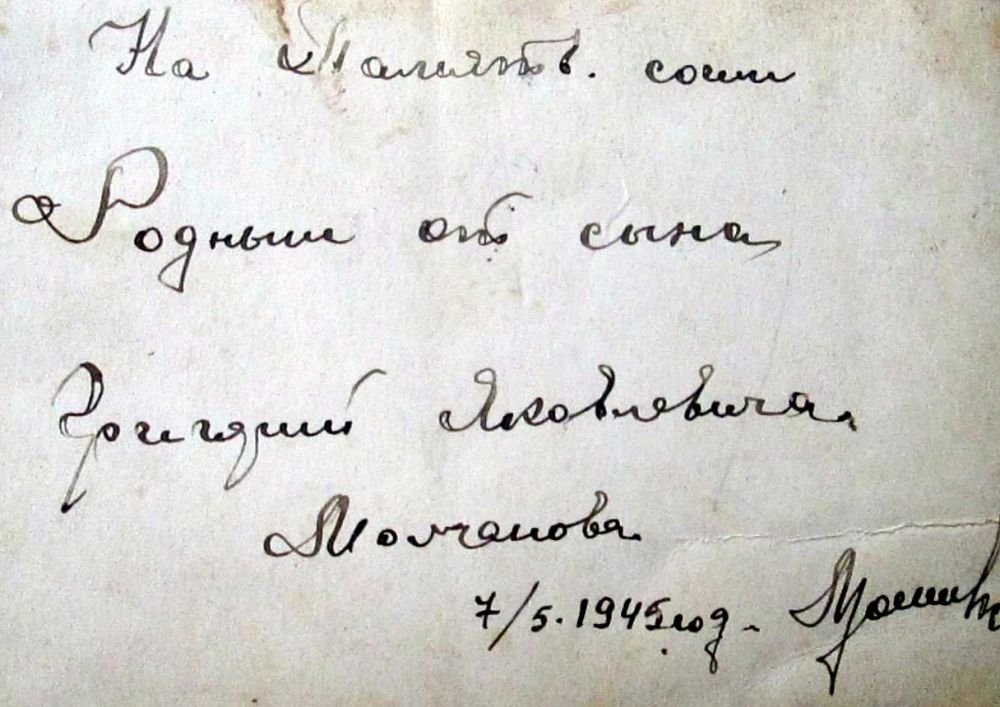 На Память. соим
Родным от сына
Григорий Яковлевича.
Молчанова.
7/5. 1945 год.